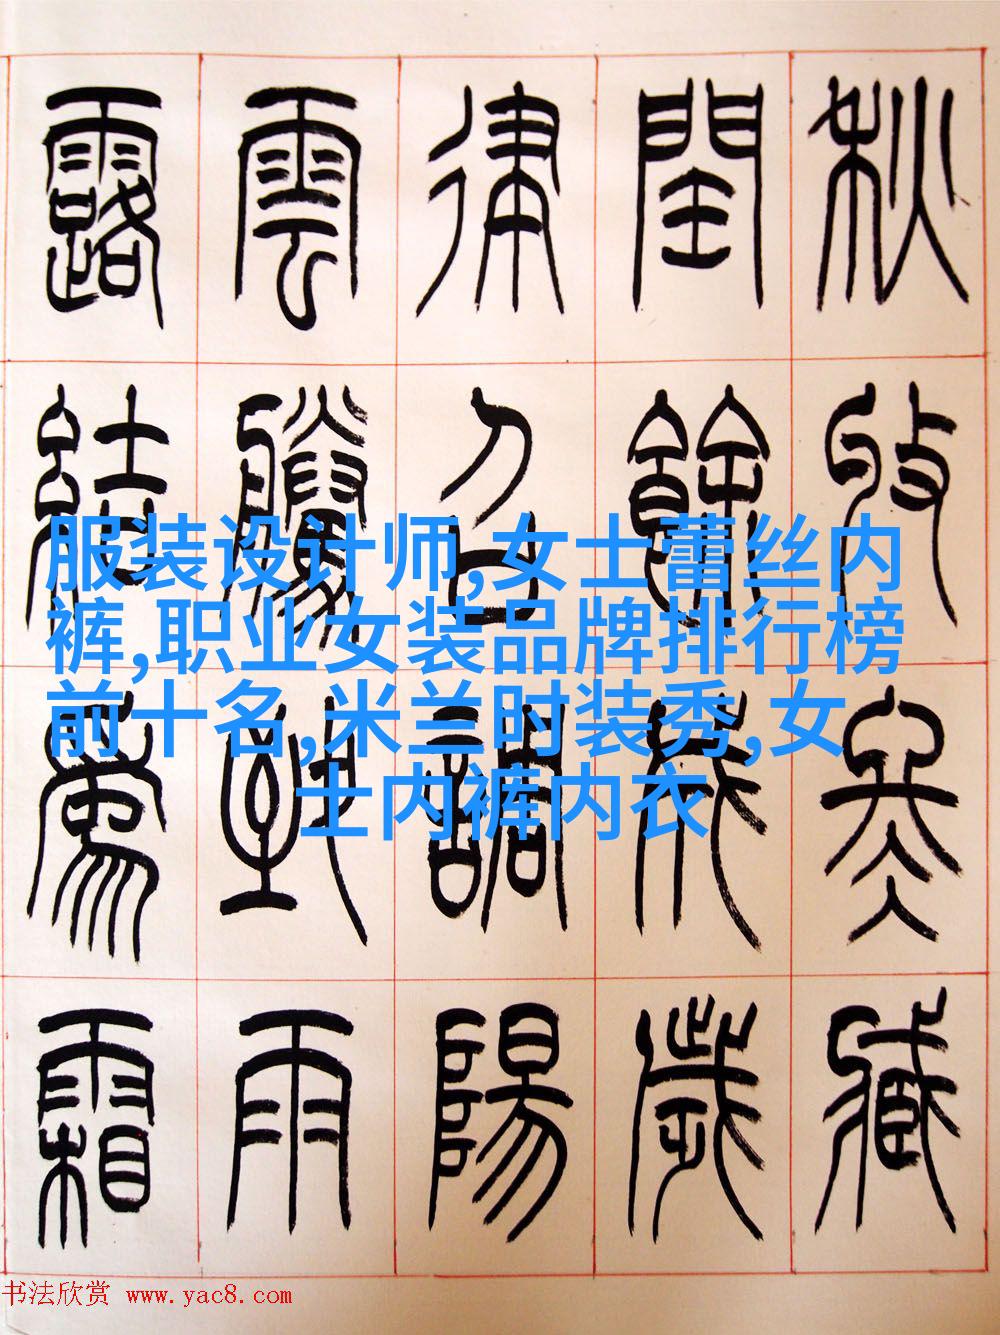 秋收冬臧
閏餘成歲
律召調陽
雲騰致雨
露結為霜
服装设计师,女士蕾丝内
裤,职业女装品牌排行榜
前十名,米兰时装秀,女
士内裤内衣
书法欣赏 www.yac8.com